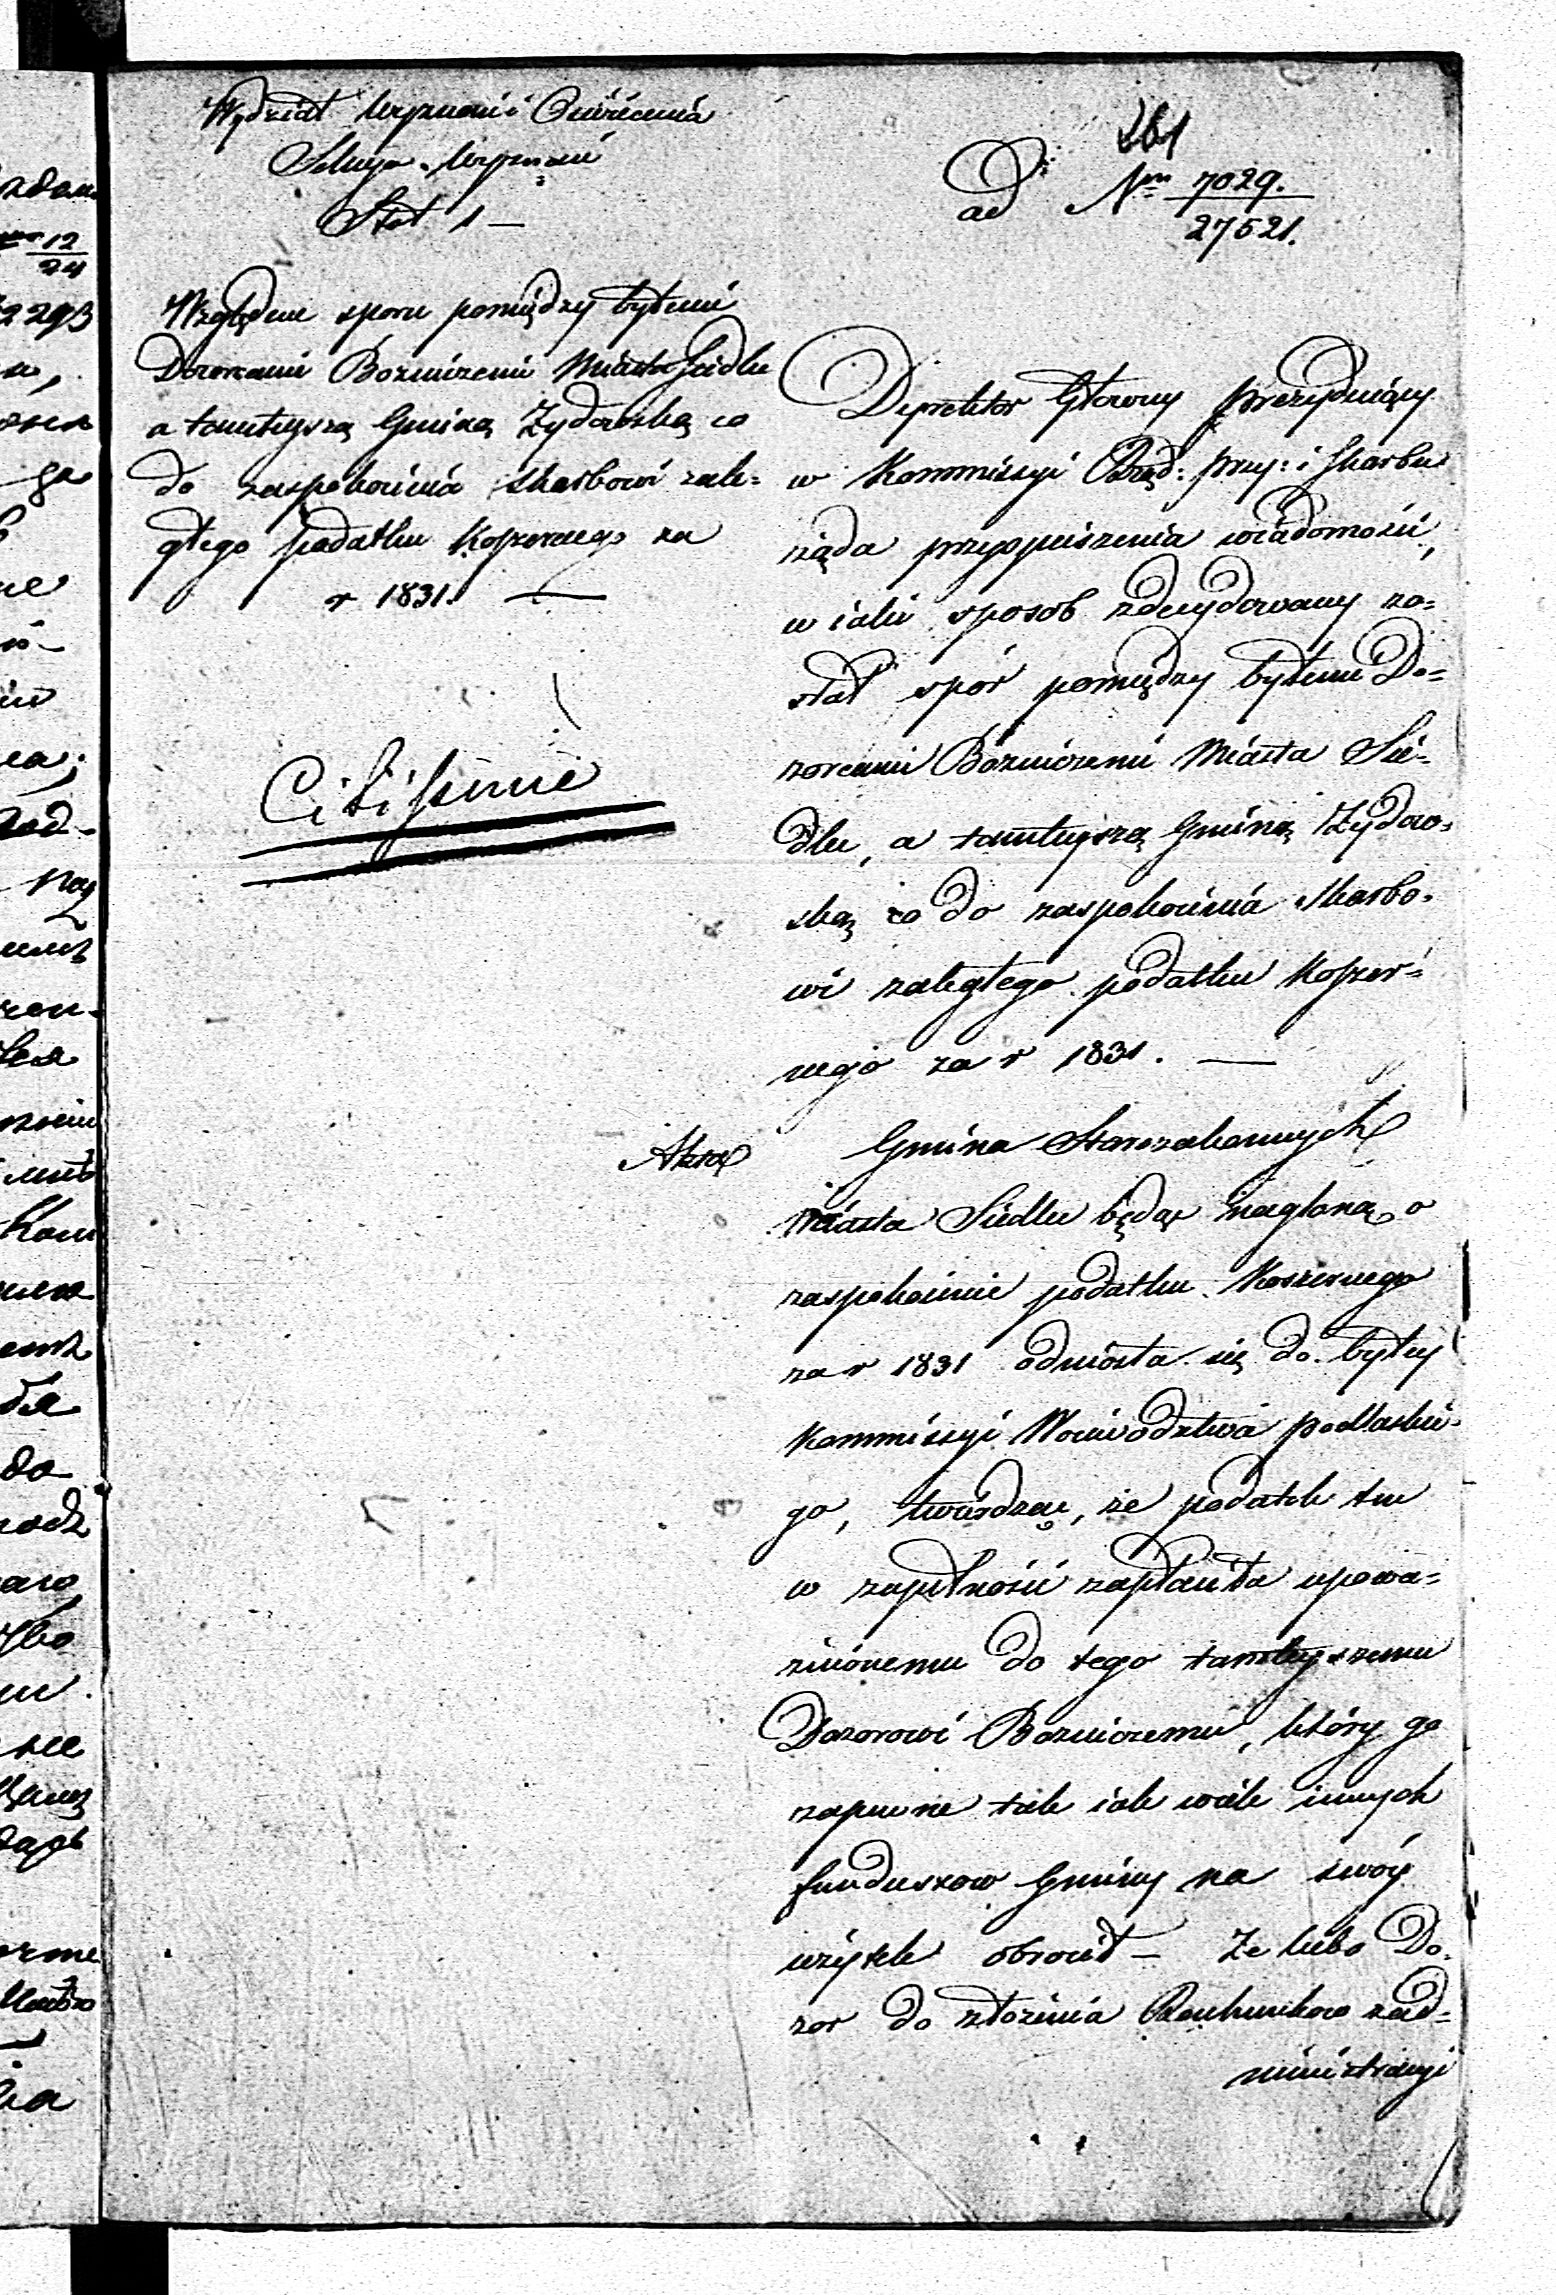 Wydział Wyznań i Oświecenia
Sekcya Wyznań
Stół 1 —
261
ad Nrm 7029.
27521.
Względem sporu pomiędzy byłemi
Dozorcami Bożniczemi Miasta Siedlec
a tamtejszą Gminą Żydowską co
do zaspokoienia skarbowi zale=
głego podatku Koszernego za
r 1831. —
Citissime
Dyrektor Główny Prezyduiący
w Kommissyi Rząd: Przy: i Skarbu
żąda przyspieszenia wiadomości,
w iaki sposob zdecydowany zo=
stał spór pomiędzy byłemi Do=
zorcami Bożniczemi Miasta Sie=
dlec, a tamtejszą Gminą Żydow=
ską co do zaspokoienia skarbo=
wi zaległego podatku Koszer=
nego za r 1831. —
Akta
Gmina Starozakonnych
Miasta Siedlec będąc naglona o
zaspokoienie podatku Koszernego
za r 1831 odniosła się do byłey
Kommissyi Woiewodztwa Podlaskie=
go, twierdząc, że podatek ten
w zupełności zapłaciła upowa=
żnionemu do tego tamtejszemu
Dozorowi Bożniczemu, który go
zapewne tak iak wiele innych
funduszow Gminy na swóy
użytek obrocił — Że lubo Do=
zor do złożenia Rachunkow z ad=
ministracyi